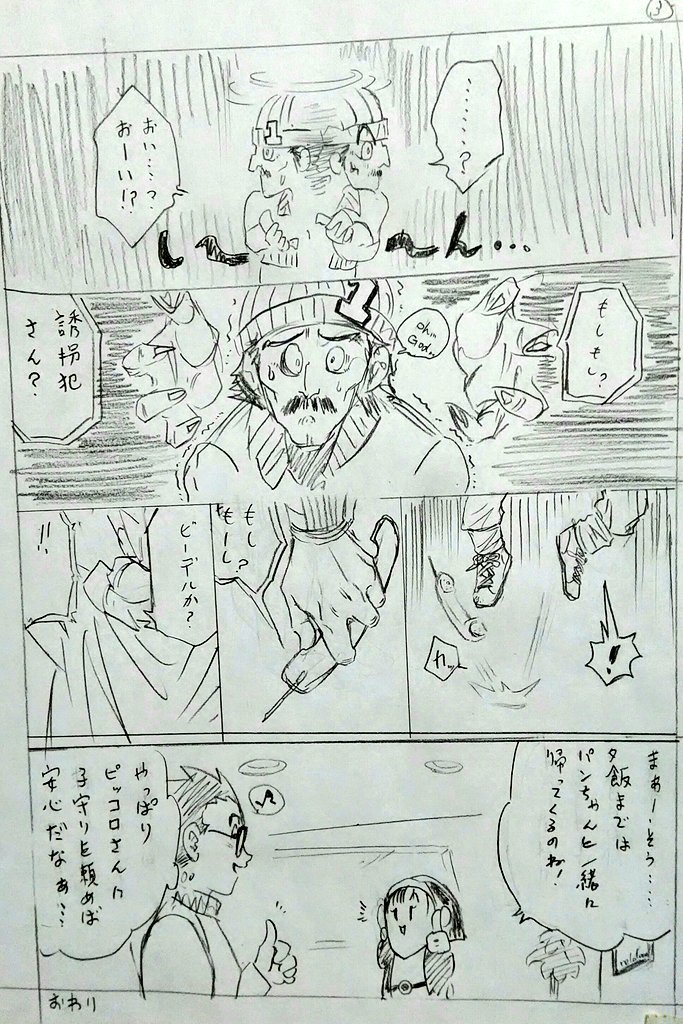 3
‥‥‥?
おい‥‥?
おーい!?
し〜〜ん…
もしもし?
Ohh
God…
誘拐犯
さん?
1
!
もし
もーし?
ビーデルか?
!!
まぁー、そう‥‥‥
夕飯までは
パンちゃんと一緒に
帰ってくるのね!
やっぱり
ピッコロさんに
子守りを頼めば
安心だなぁ‥‥
おわり